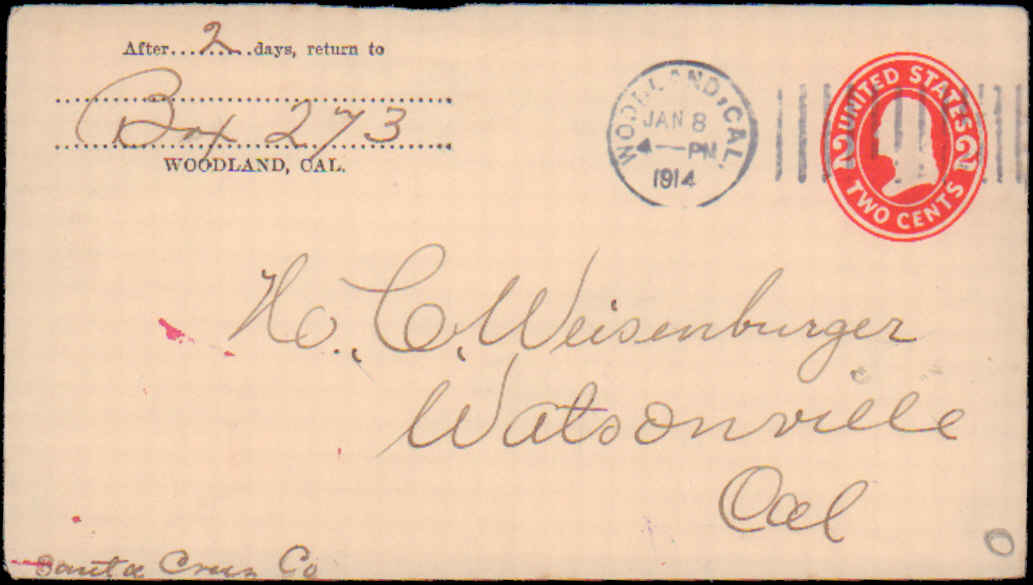 After....2.....days, return to
Box 273
WOODLAND, CAL.
WOODLAND, CAL.
JAN 8
4— PM
1914
UNITED STATES
2 2
TWO CENTS
H. C. Weisenburger
Watsonville
Cal
Santa Cruz Co